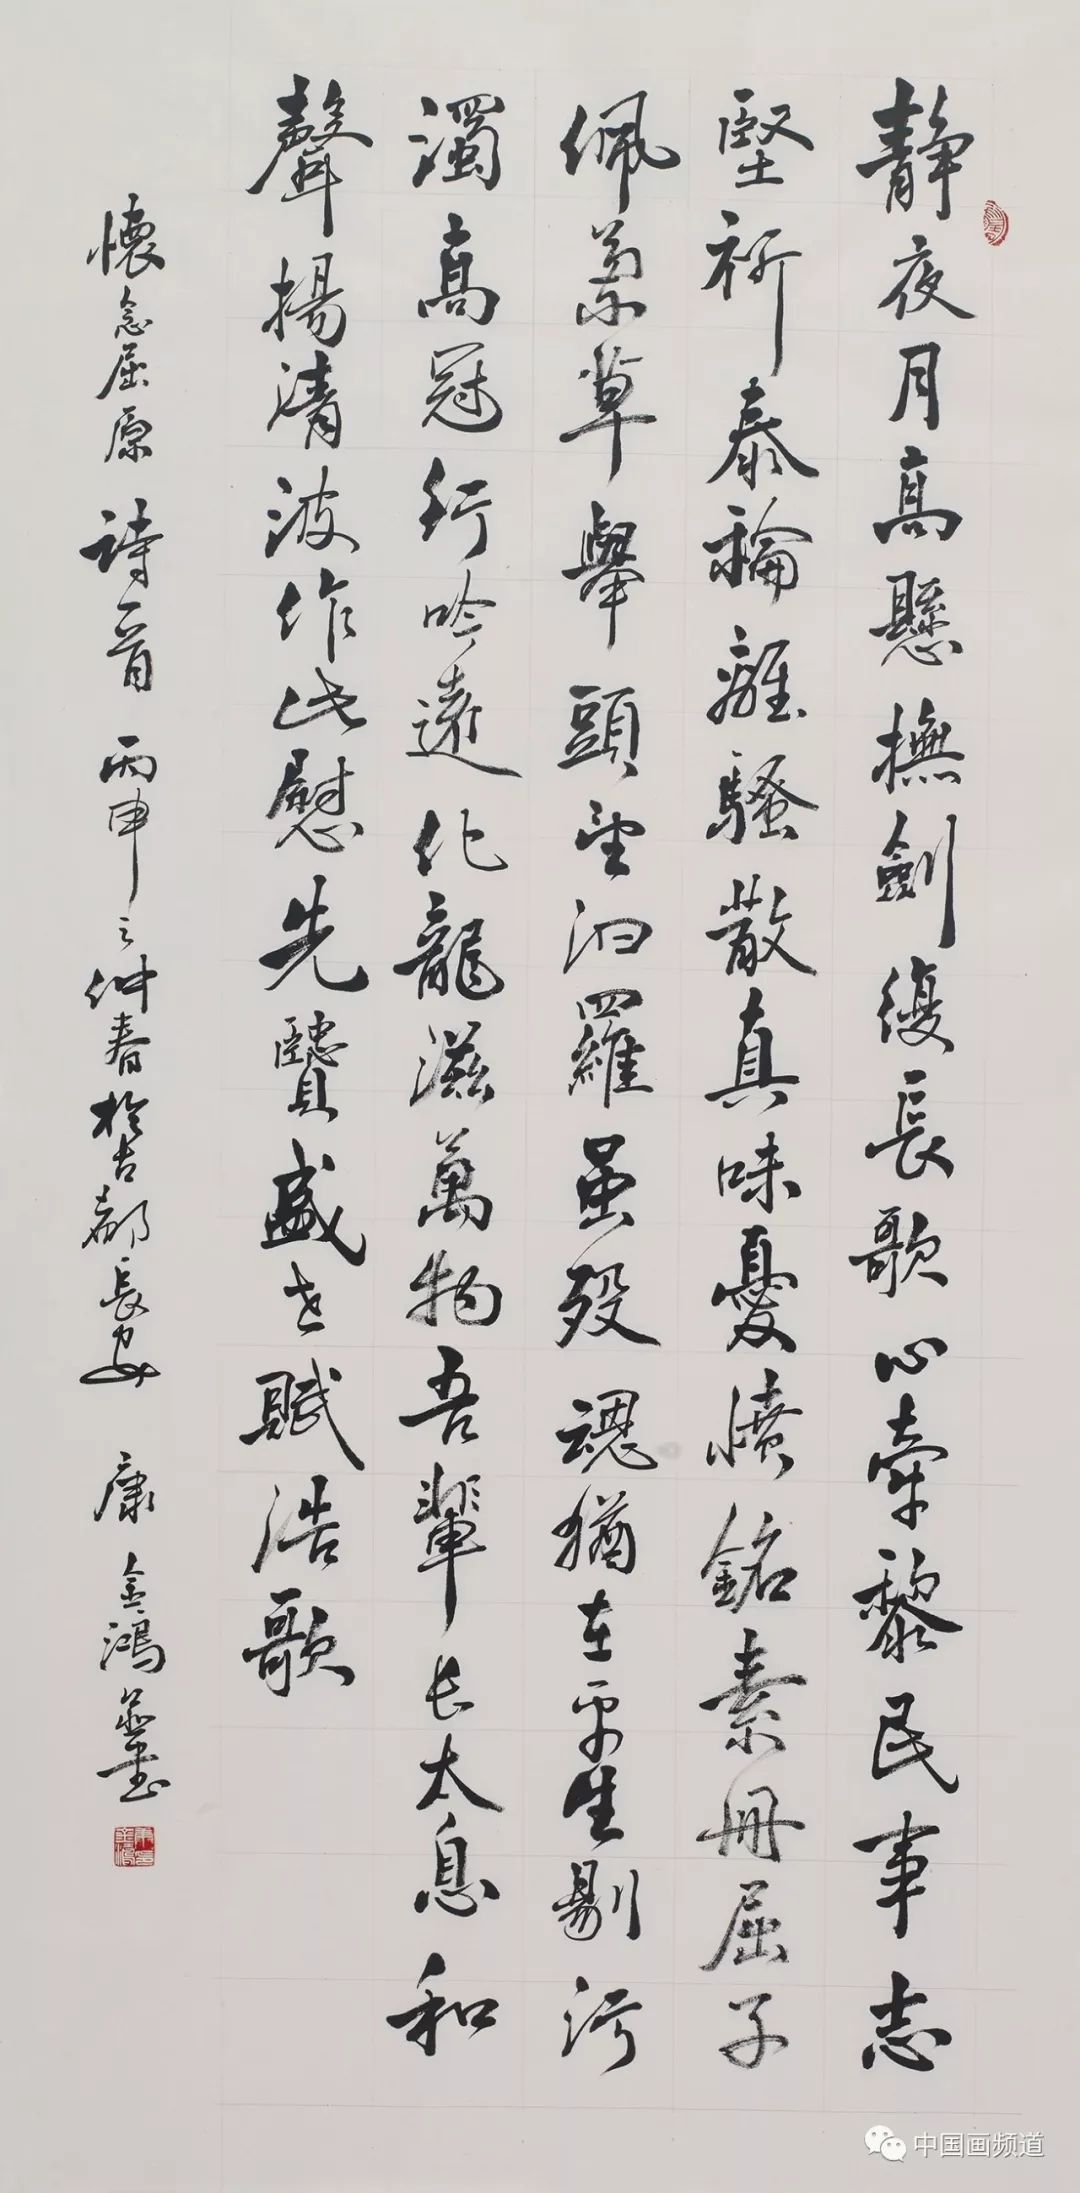 靜夜月高懸撫劍復長歌心牽黎民事志
堅祈泰稐離騷散真味憂憤銘素冊屈子
佩蘭草舉頭望汨羅虽殁魂猶在平生剔污
濁高冠行吟遠化龍滋萬物吾輩长太息和
聲揚清波作此慰先賢盛世賦浩歌
懷念屈原詩一首丙申之仲春於古都長安康金鴻並書
中国画频道